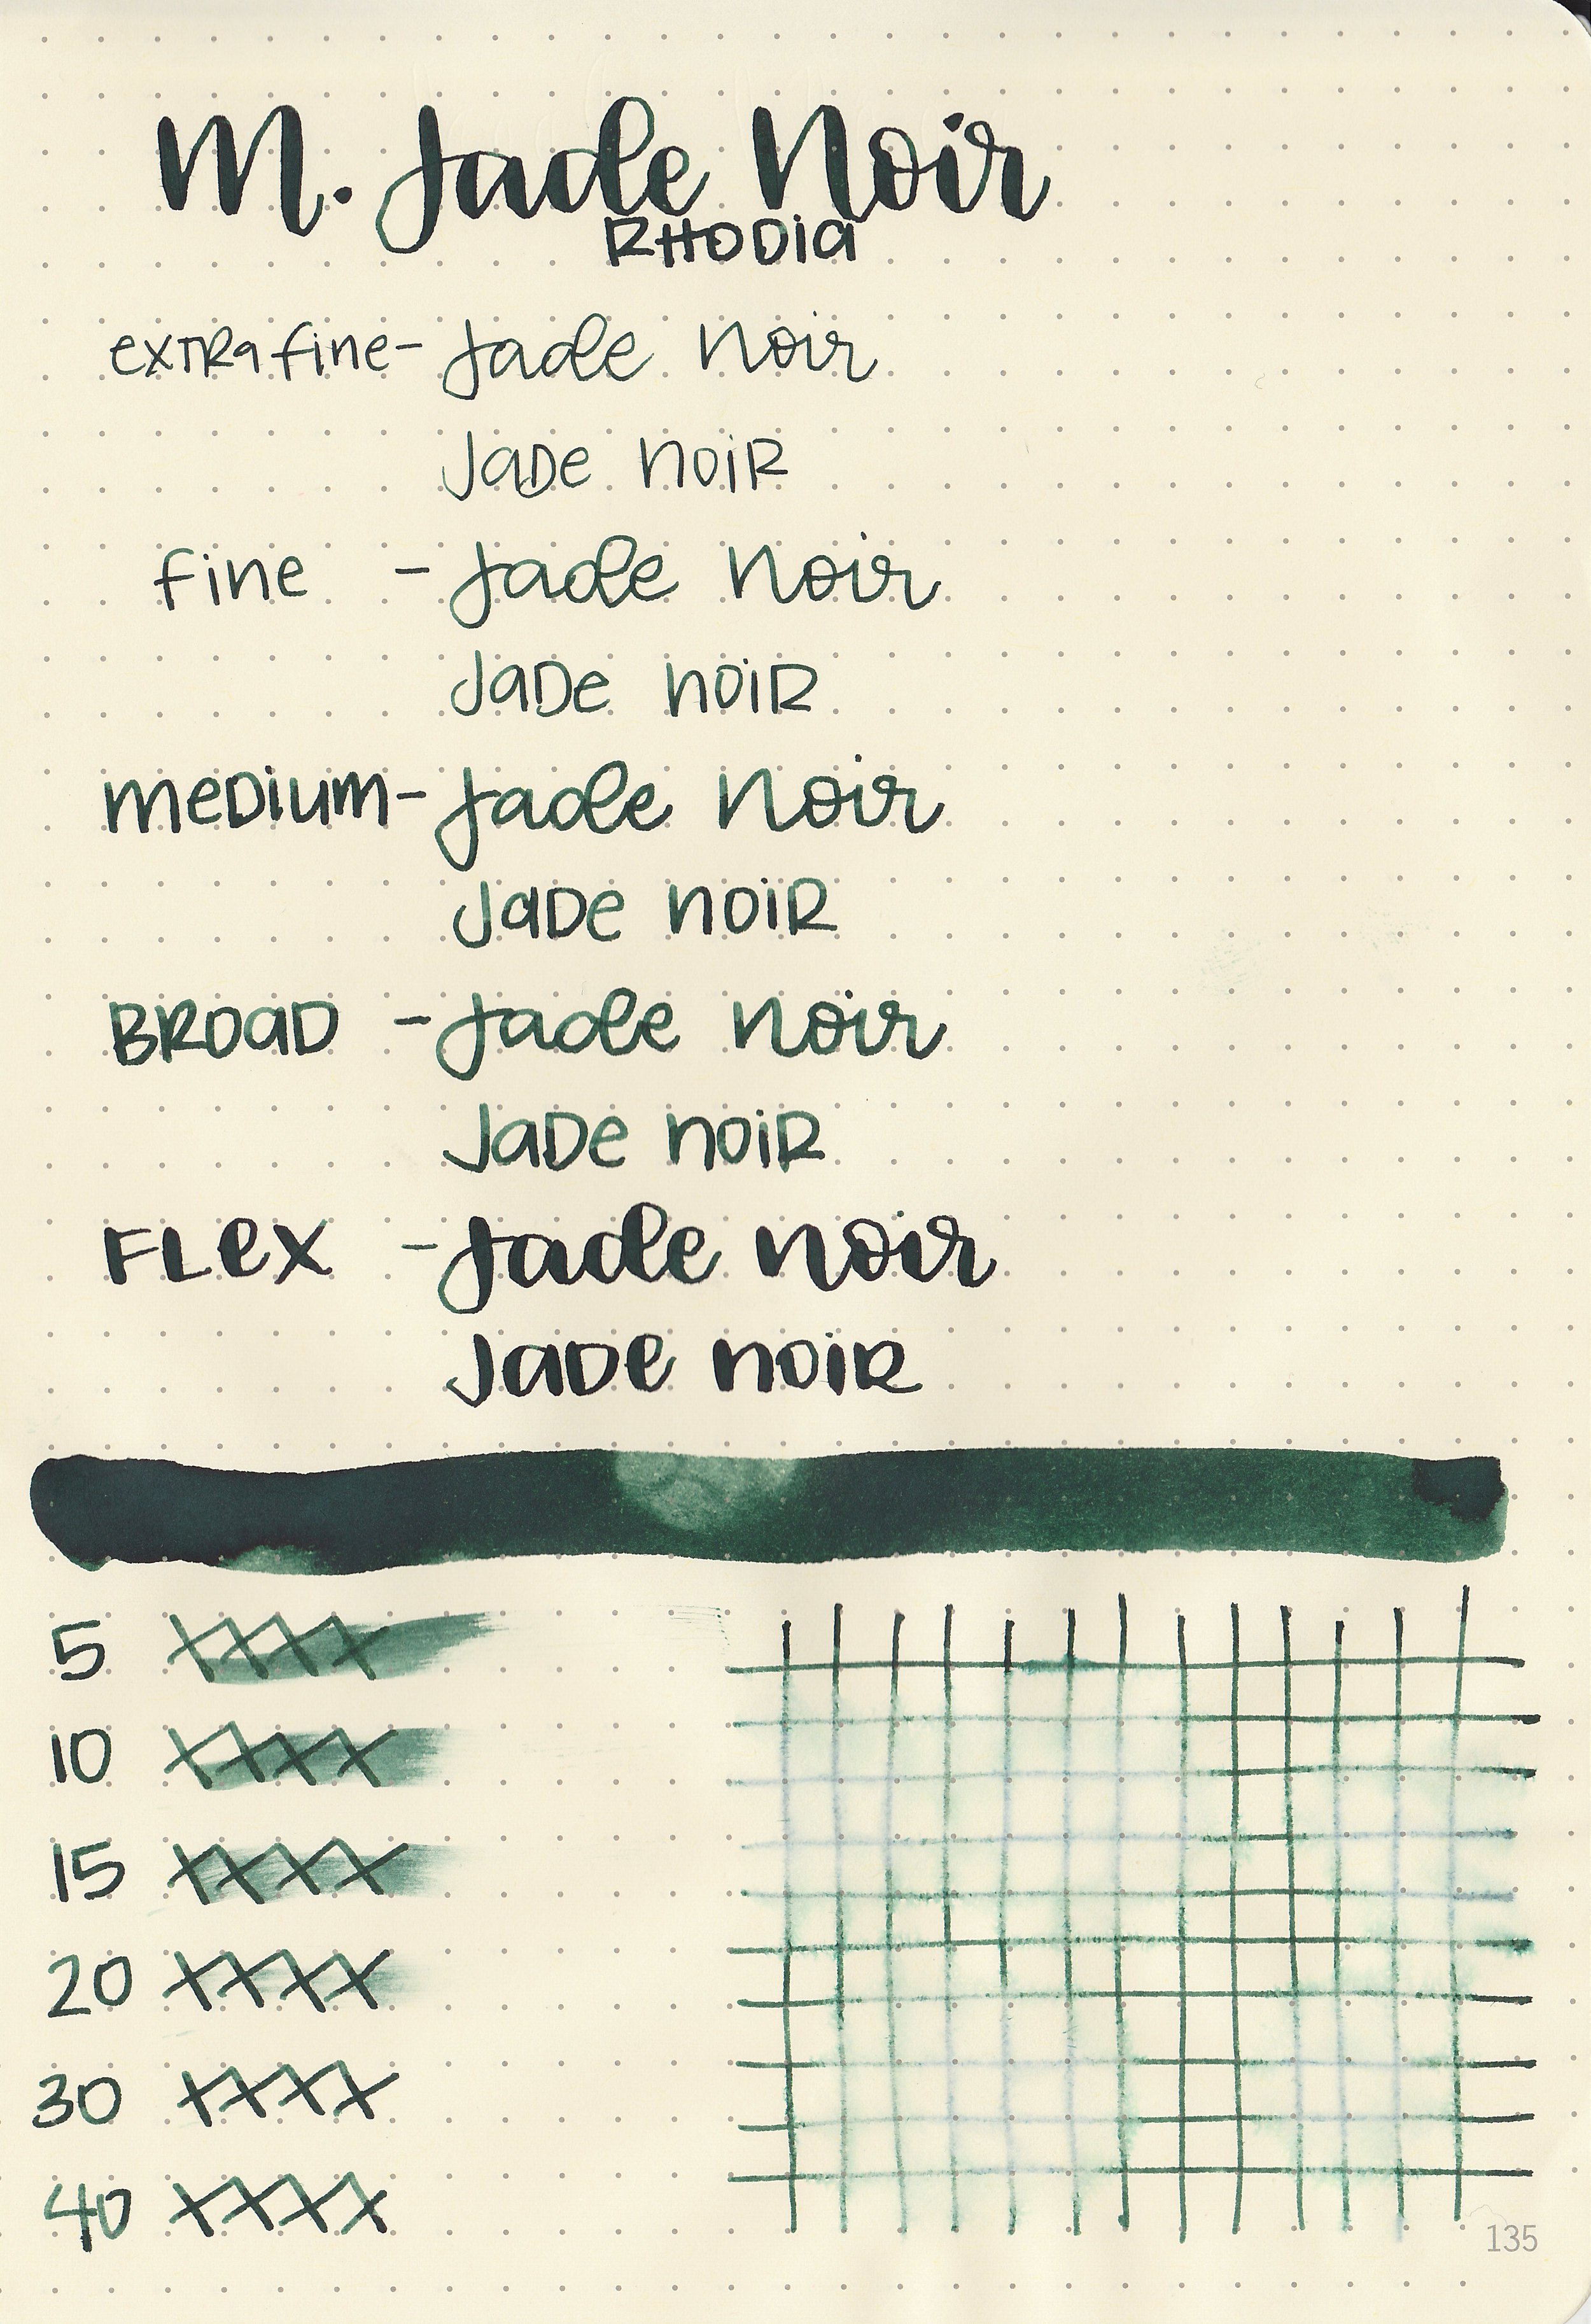 M. Jade Noir
RHODIA
extra fine - Jade Noir
Jade Noir
fine - Jade Noir
Jade Noir
medium - Jade Noir
Jade Noir
Broad - Jade Noir
Jade Noir
Flex - Jade Noir
Jade Noir
5 XXXX
10 XXXX
15 XXXX
20 XXXX
30 XXXX
40 XXXX
135